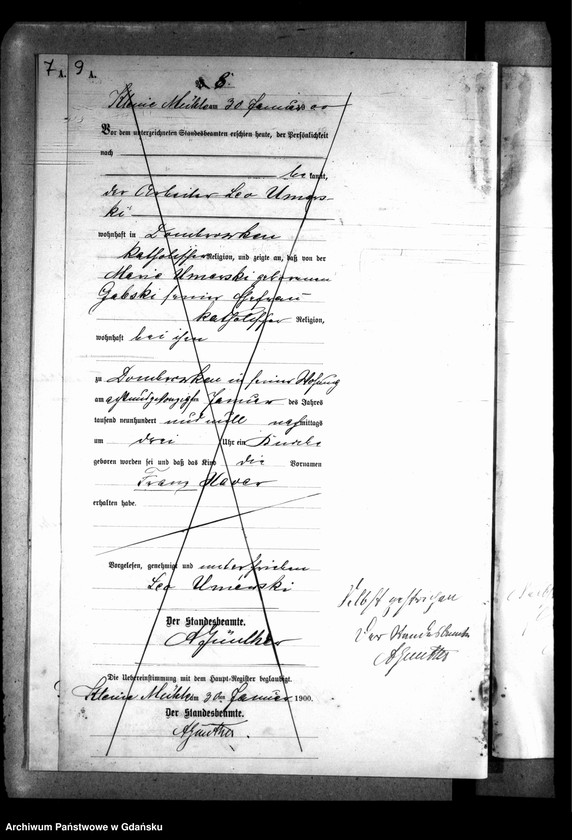 7 A. 9 A.
8.
Kleine Mühle am 30 Januar 00
Vor dem unterzeichneten Standesbeamten erschien heute, der Persönlichkeit
nach
be kannt,
der Arbeiter Leo Umers
ki
wohnhaft in Dombrowken
katholischer Religion, und zeigte an, daß von der
Maria Umerski geborenen
Gabski seiner Ehefrau
katholischer Religion,
wohnhaft bei ihm
zu Dombrowken in seiner Wohnung
am Januar des Jahres
tausend neunhundert und null nachmittags
um drei Uhr ein Knabe
geboren worden sei und daß das Kind die Vornamen
Franz Xaver
erhalten habe.
Vorgelesen, genehmigt und unterschrieben
Leo Umerski
Der Standesbeamte.
AGünther
Die Uebereinstimmung mit dem Haupt-Register beglaubigt.
Kleine Mühle am 30ten Januar 1900.
Der Standesbeamte.
AGünther
Selbst gestrichen
Der Standesbeamte
AGünther
Archiwum Państwowe w Gdańsku